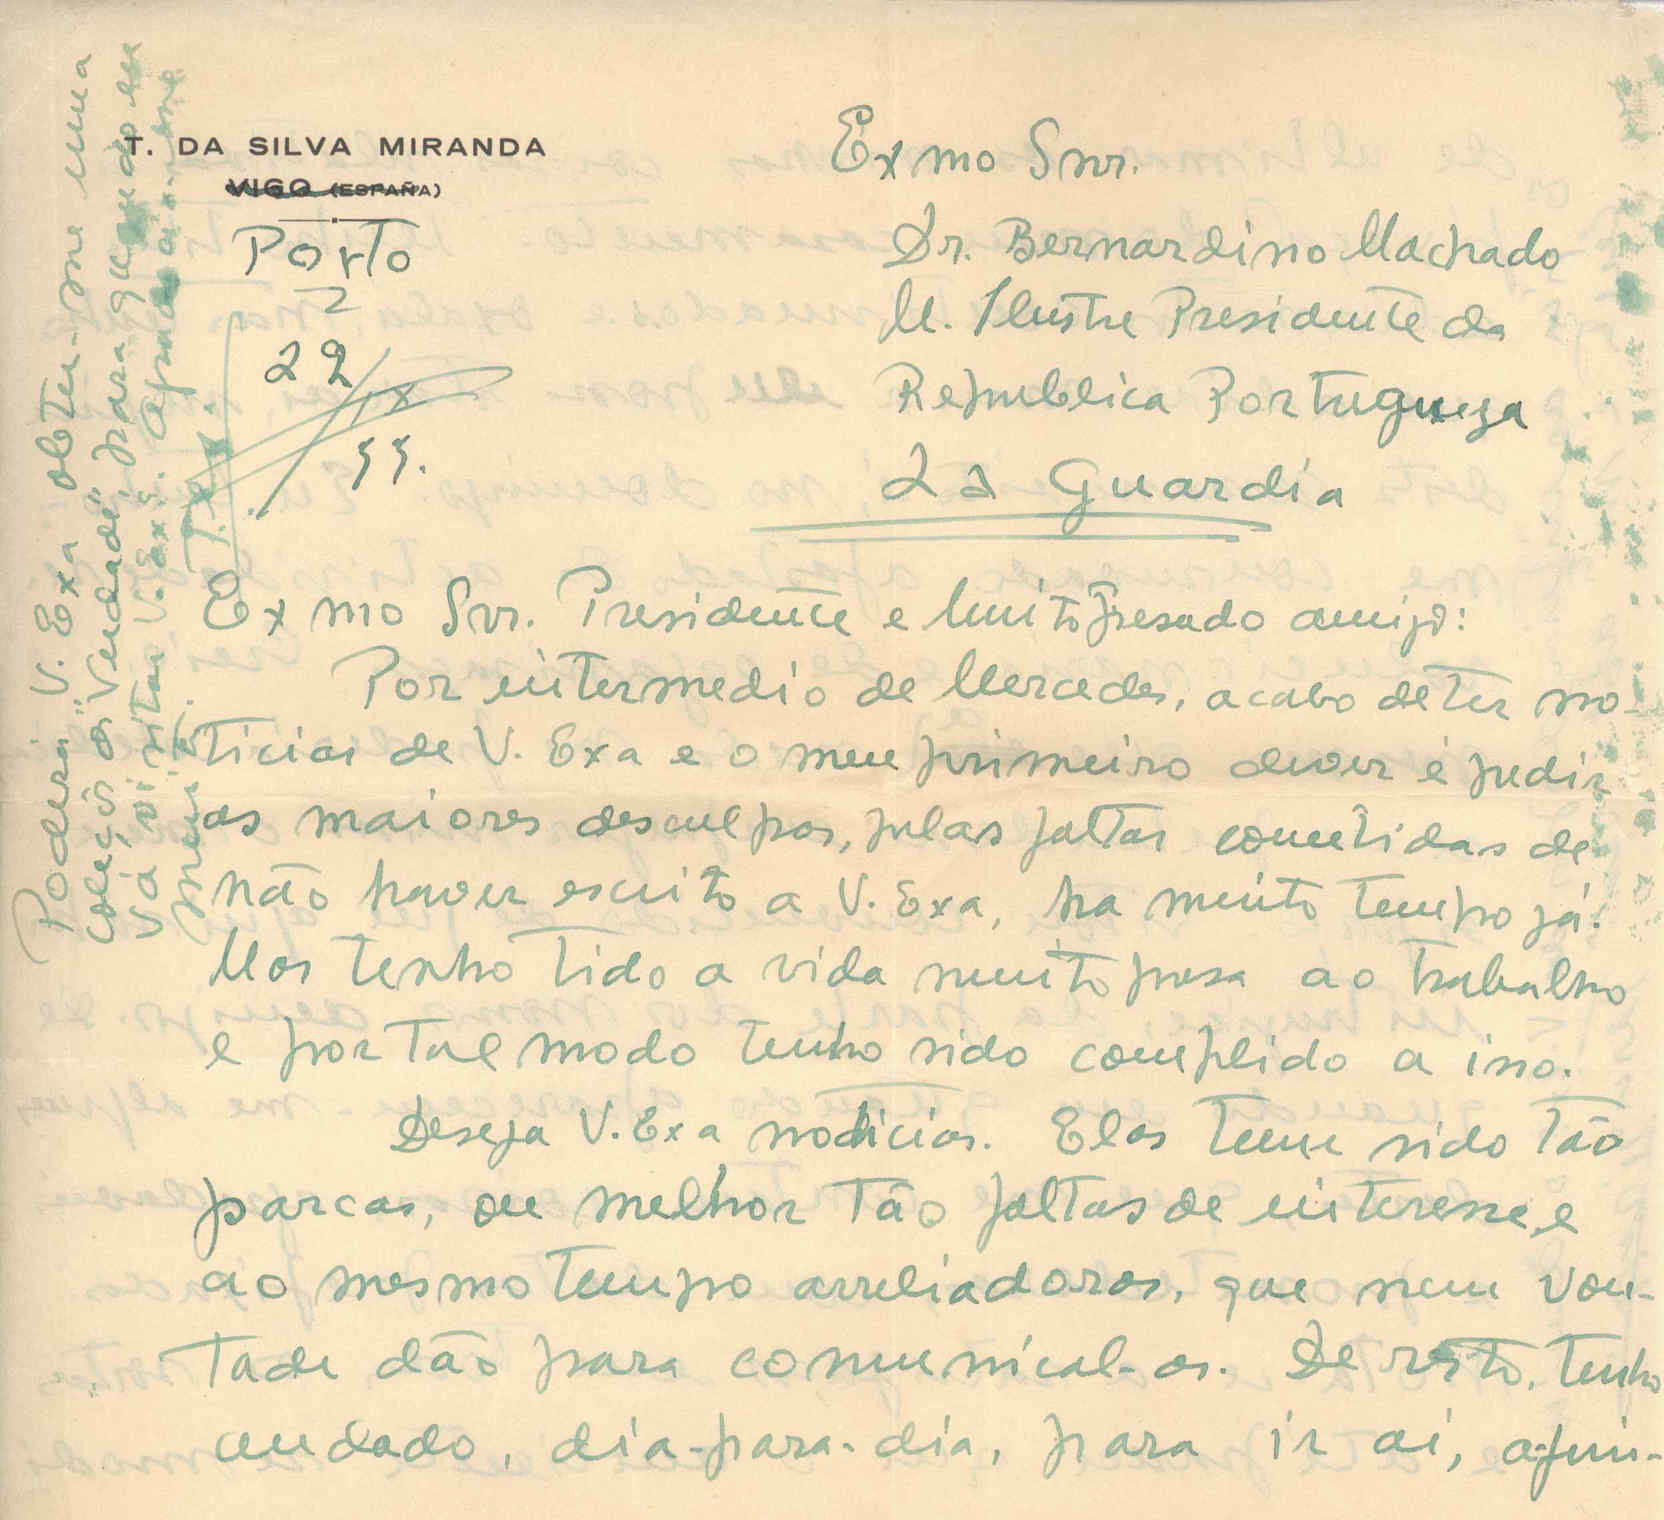 T. DA SILVA MIRANDA
VIGO (ESPAÑA)
Porto
22/IX
35.
Exmo Snr.
Dr. Bernardino Machado
M. Ilustre Presidente da
Republica Portugueza
La Guardia
Exmo Snr. Presidente e Muito Presado amigo:
Por intermedio de Mercedes, acabo de ter no-
ticias de V. Exa e o meu primeiro dever é pedir
as maiores desculpas, pelas faltas cometidas de
não haver escrito a V. Exa, ha muito tempo já.
Mas tenho tido a vida muito presa ao trabalho
e por tal modo tenho sido compelido a isso.
Deseja V. Exa noticias. Elas teem sido tão
parcas, ou melhor tão faltas de interesse, e
ao mesmo tempo arreliadoras, que nem von-
tade dão para comunical-as. De resto, tenho
andado, dia-para-dia, para ir aí, afim-
Poderá V. Exa obter-me uma
coleção d'"A Verdade", para quando eu
vá visitar V. Exª. Agradecia-me
muito.